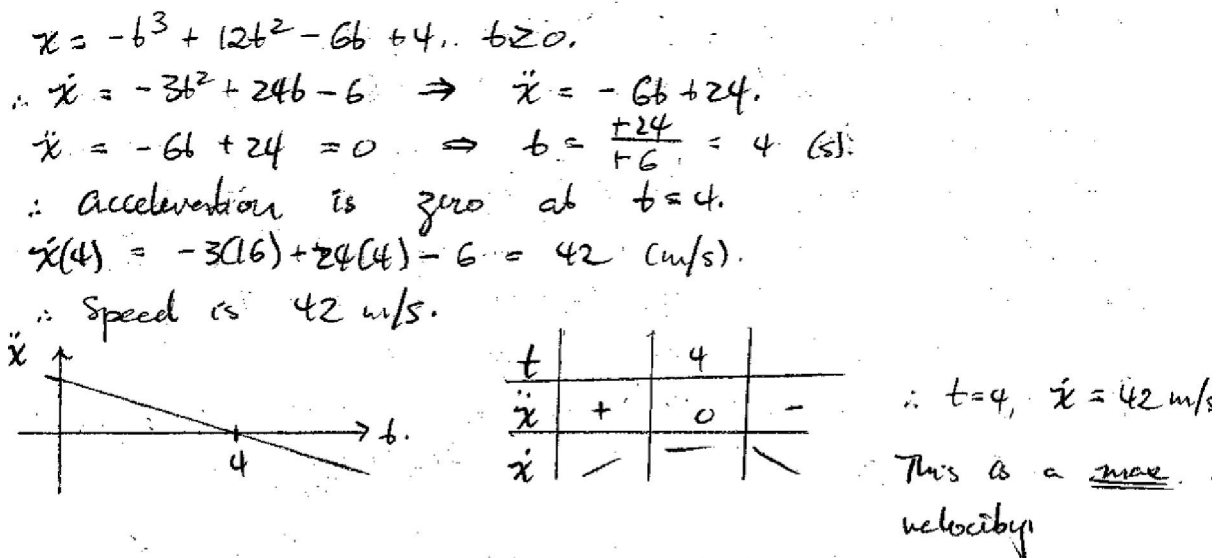 x = -t³ + 12t² - 6t + 4, t ≥ 0.
∴ ẋ = -3t² + 24t - 6 ⇒ ẍ = -6t + 24.
ẍ = -6t + 24 = 0 ⇒ t = +24/+6 = 4 (s).
∴ acceleration is zero at t = 4.
ẋ(4) = -3(16) + 24(4) - 6 = 42 (m/s).
∴ Speed is 42 m/s.
ẍ
4
t.
t 4
ẍ + 0 -
ẋ / — \
∴ t=4, ẋ = 42 m/s
This is a max.
velocity